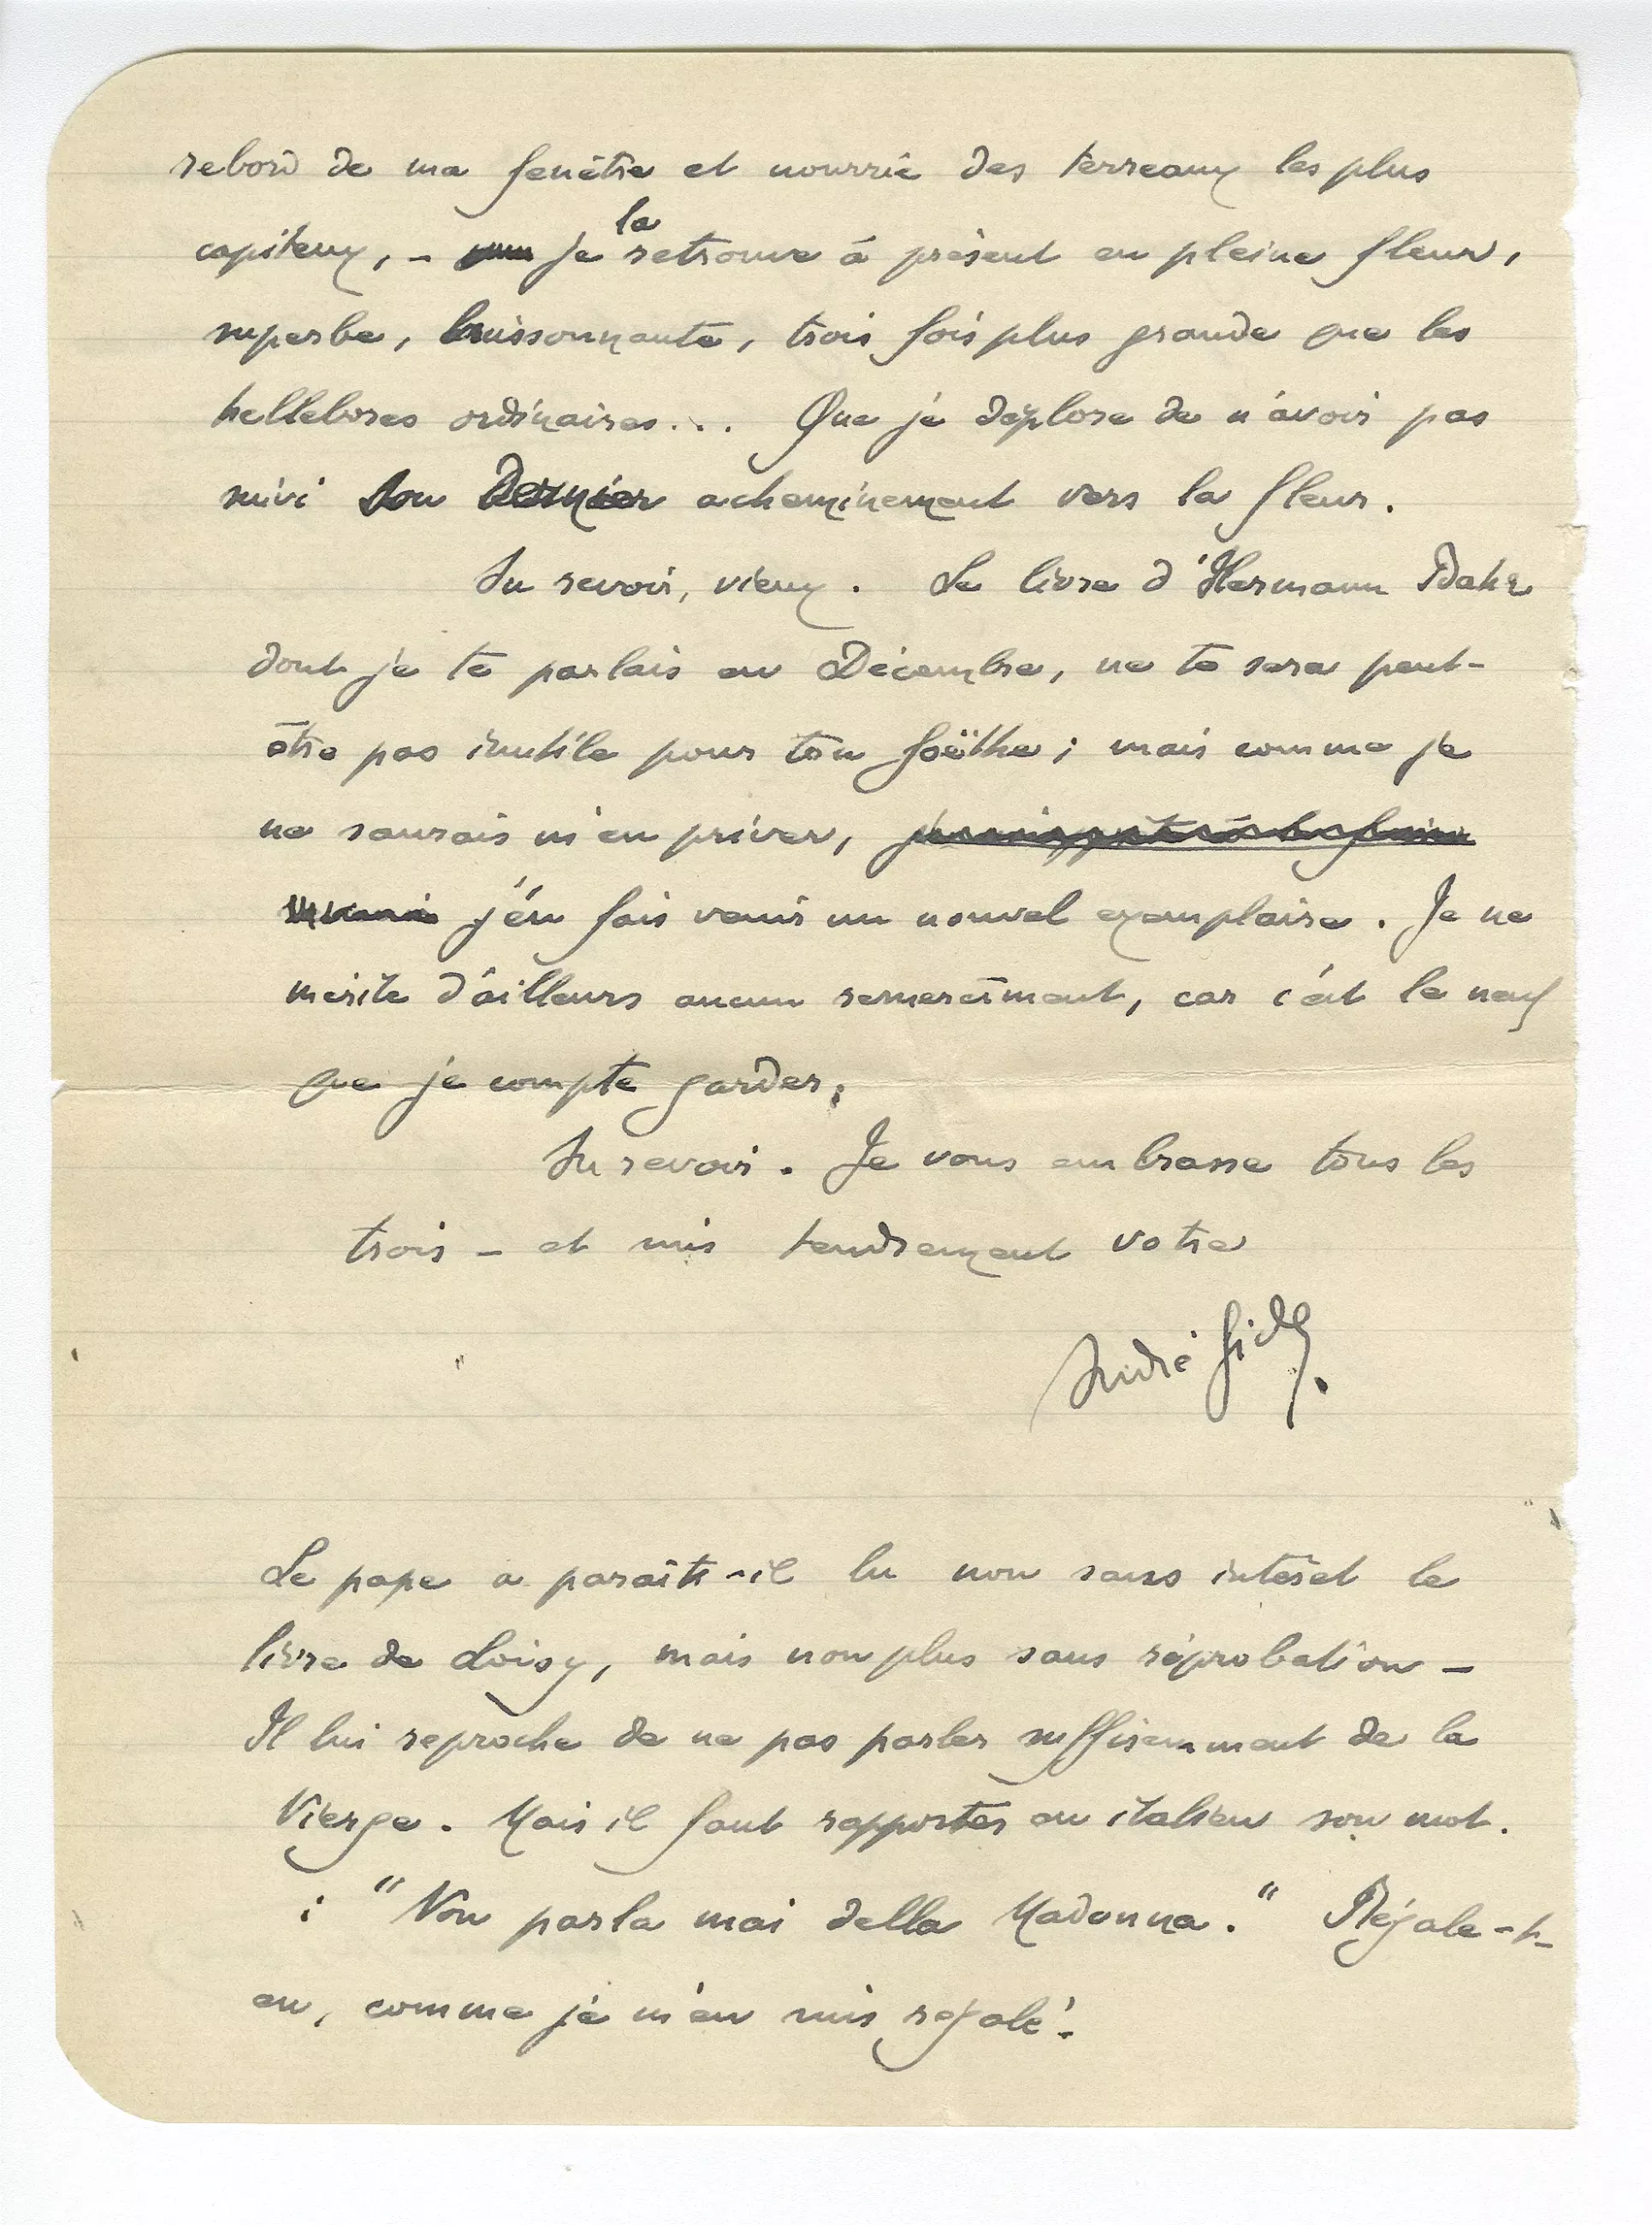 rebord de ma fenêtre et nourrie des terreaux les plus
capiteux, – je la retrouve à présent en pleine fleur,
superbe, buissonnante, trois fois plus grande que les
hellebores ordinaires... Que je déplore de n'avoir pas
suivi son dernier acheminement vers la fleur.
Au revoir, vieux. Le livre d'Hermann Bahr
dont je te parlais en Décembre, ne te sera peut-
être pas inutile pour ton Goëthe ; mais comme je
ne saurais m'en priver,
j'en fais venir un nouvel exemplaire. Je ne
mérite d'ailleurs aucun remercîment, car c'est le neuf
que je compte garder.
Au revoir. Je vous embrasse tous les
trois – et suis tendrement votre
André Gide.
Le pape a paraît-il lu non sans intérêt le
livre de Loisy, mais non plus sans réprobation –
Il lui reproche de ne pas parler suffisamment de la
Vierge. Mais il faut rapporter en italien son mot.
: "Non parla mai della Madonna." Régale-t-
en, comme je m'en suis régalé.